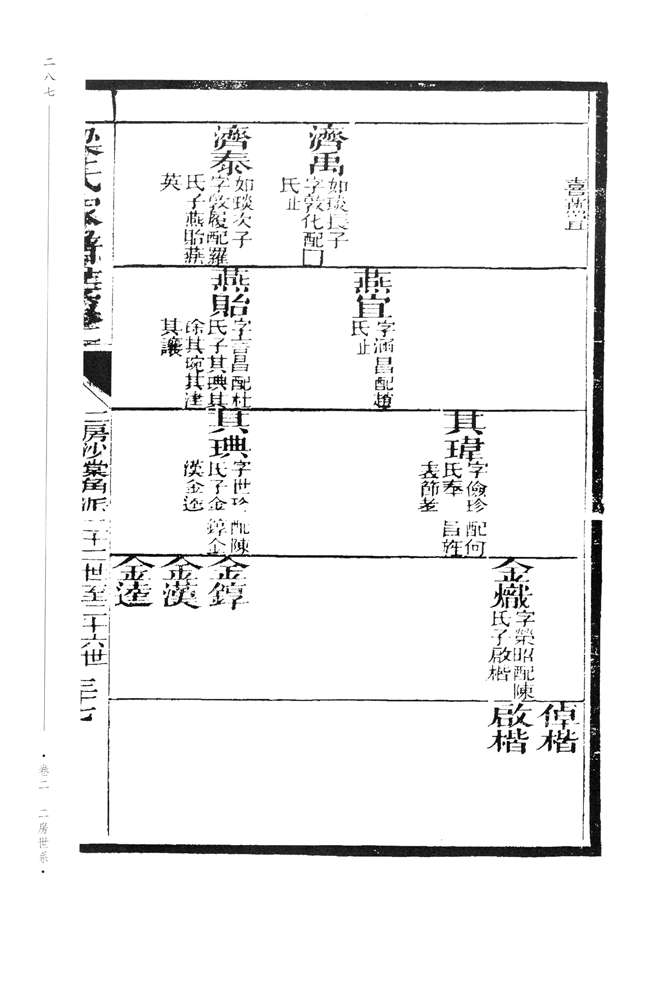 二八七
喜燕宜
濟禹
如琰長子
字敦化配囗
氏止
濟泰
如琰次子
字敦履配羅
氏子燕貽燕
英
燕宜
字涵昌配趙
氏止
燕貽
字言昌配杜
氏子其琠其
琮其琬其達
其讓
其瑋
字儉珍配何
氏奉旨旌
表節孝
其琠
字世珍配陳
氏子金錞金
漢金逵
金熾
字榮昭配陳
氏子啟楷
金錞
金漢
金逵
倬楷
啟楷
梁氏家譜
二房沙棠角派
二十二世至二十六世
三十七
·卷二
二房世系·